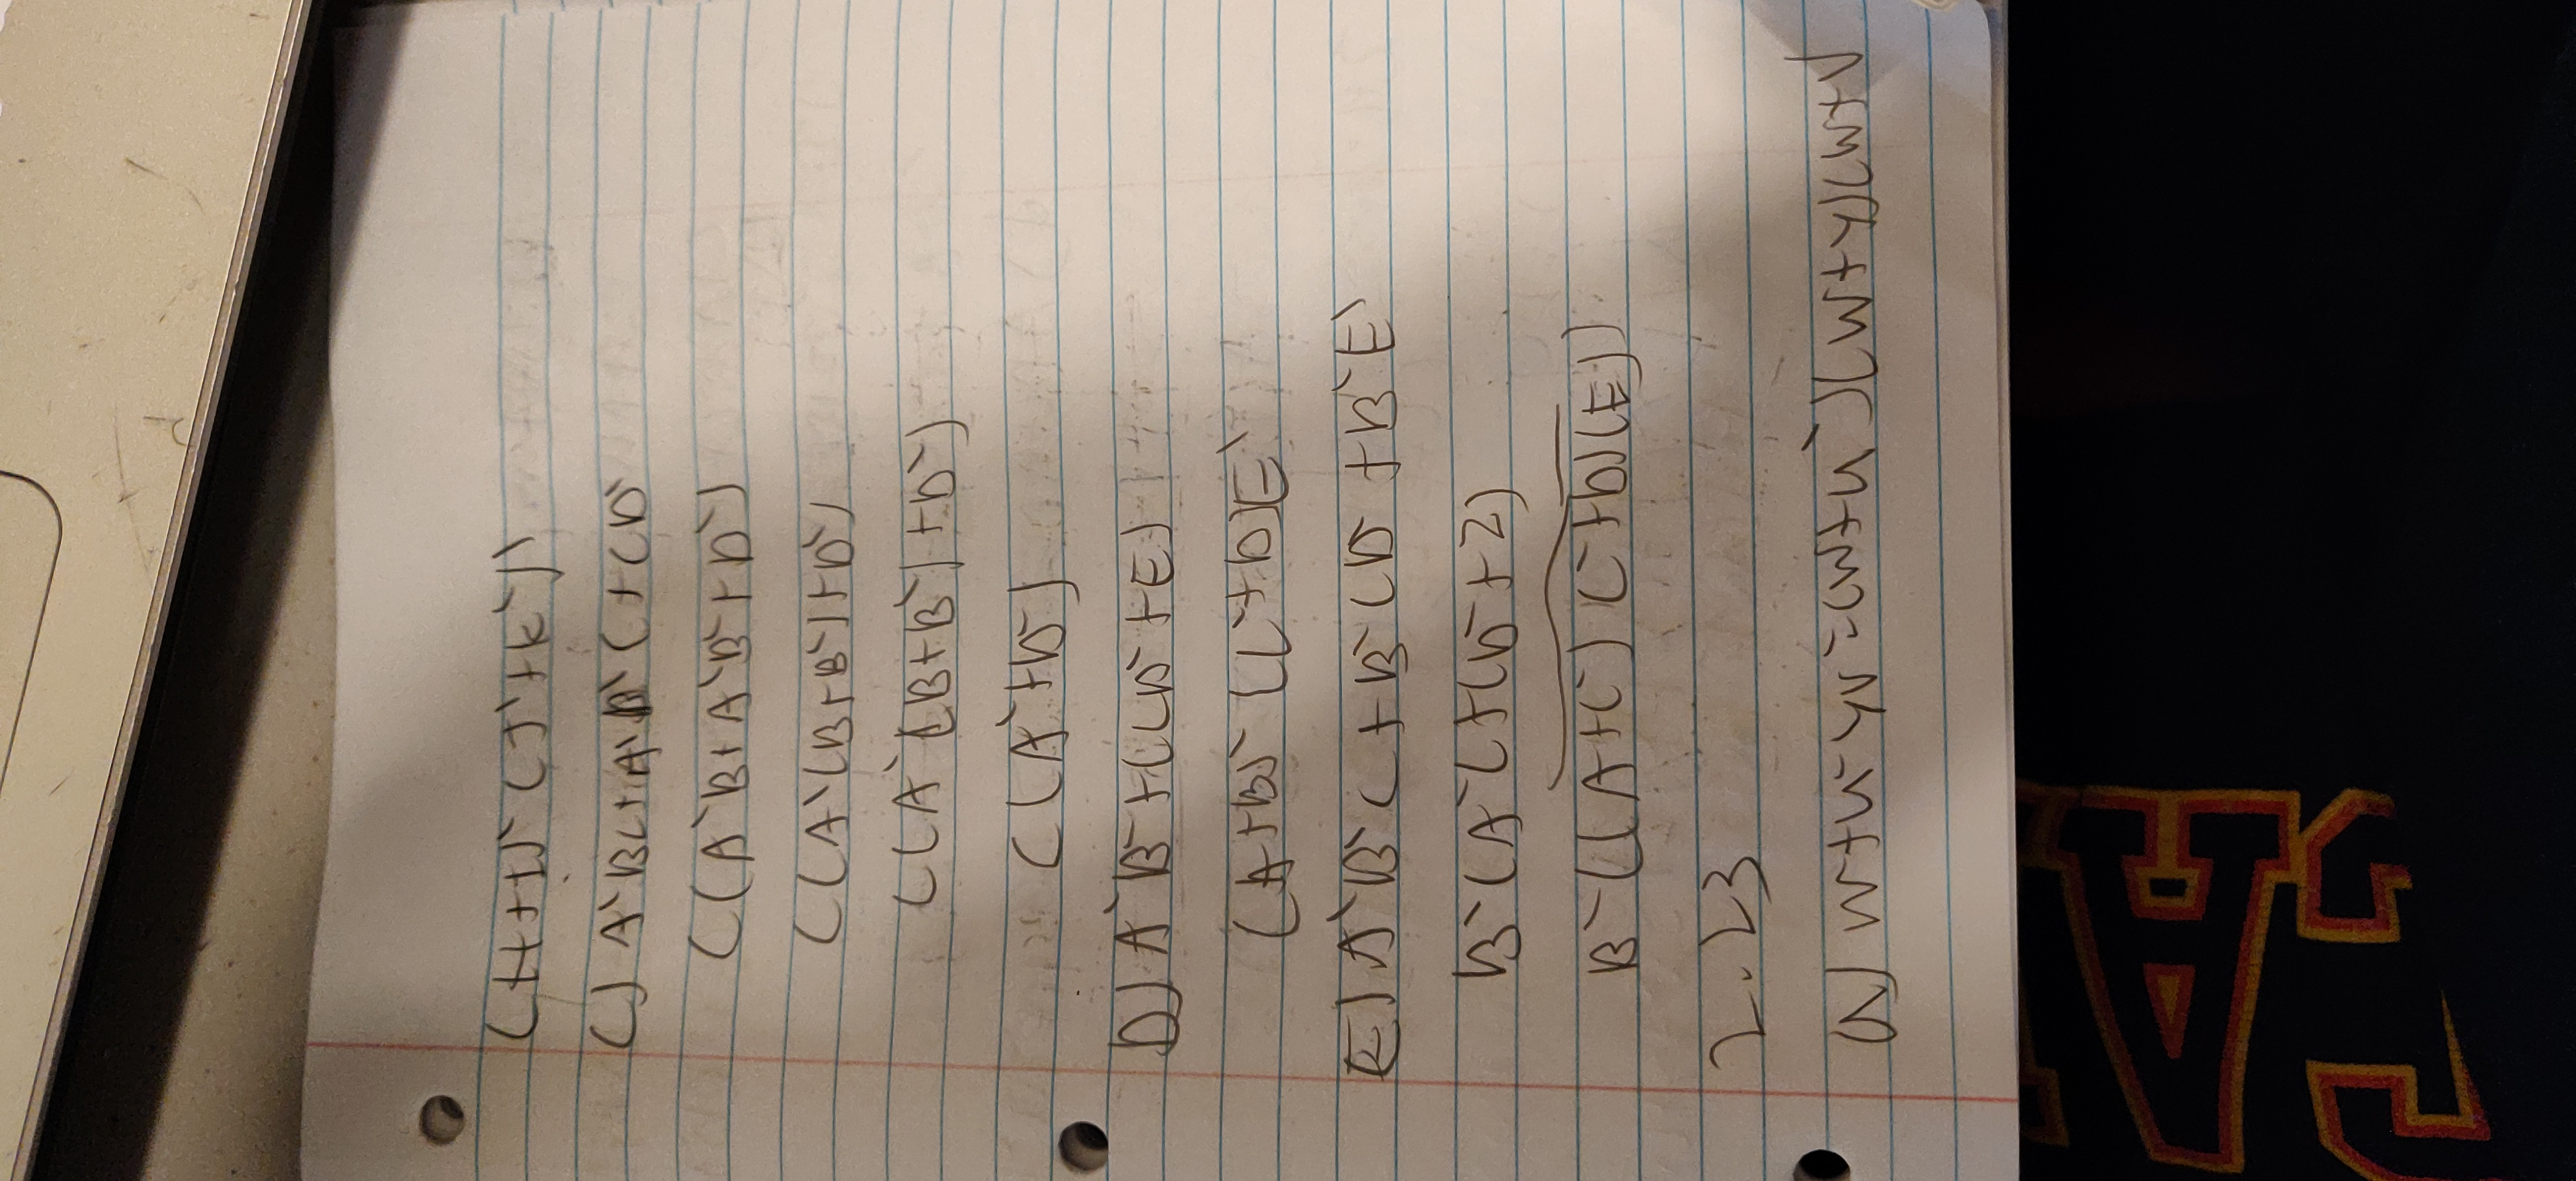 (H+I)` (J`+K`)`
C) A`BC+A`B`C+CD`
C(A`B+A`B`+D`)
C(A`(B+B`)+D`)
C(A`(B+B`)+D`)
C(A`+D`)
D) A`B`+(CD`+E)
(A+B)` (C`+D)E`
E) A`B`C+B`CD`+B`E`
B`(A`C+CD`+2)
B`((A+C`) C`+D)(E))
2.23
a) W+U`YV=(W+U`)(W+Y)(W+V